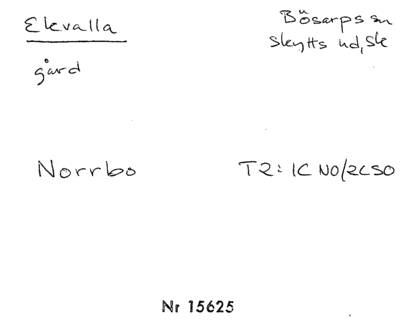 Ekvalla
Bösarps sn
Skytts hd, Sk
gård
Norrbo
T2: 1C NO/2C SO
Nr 15625